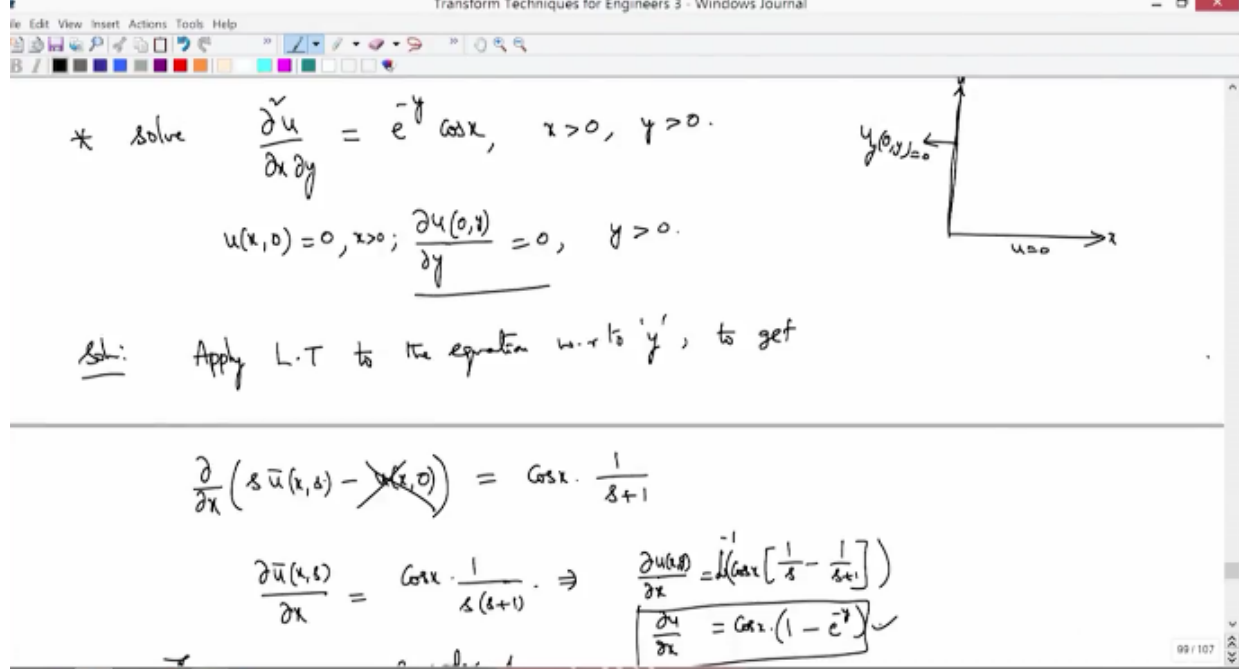 Transform Techniques for Engineers 3 - Windows Journal
File Edit View Insert Actions Tools Help
B I
* Solve ∂²u/∂x∂y = e^{-y} cosx, x>0, y>0.
u(x,0)=0, x>0; ∂u(0,y)/∂y = 0, y>0.
y
u_y(0,y)=0
x
u=0
Soln: Apply L.T to the equation w.r.to 'y', to get
∂/∂x (s ū(x,s) - u(x,0)) = Cosx. 1/(s+1)
∂ū(x,s)/∂x = Cosx. 1/(s(s+1)). ⇒ ∂u(x,y)/∂x = L^{-1}(Cosx[1/s - 1/(s+1)])
∂u/∂x = Cosx.(1 - e^{-y})
99 / 107